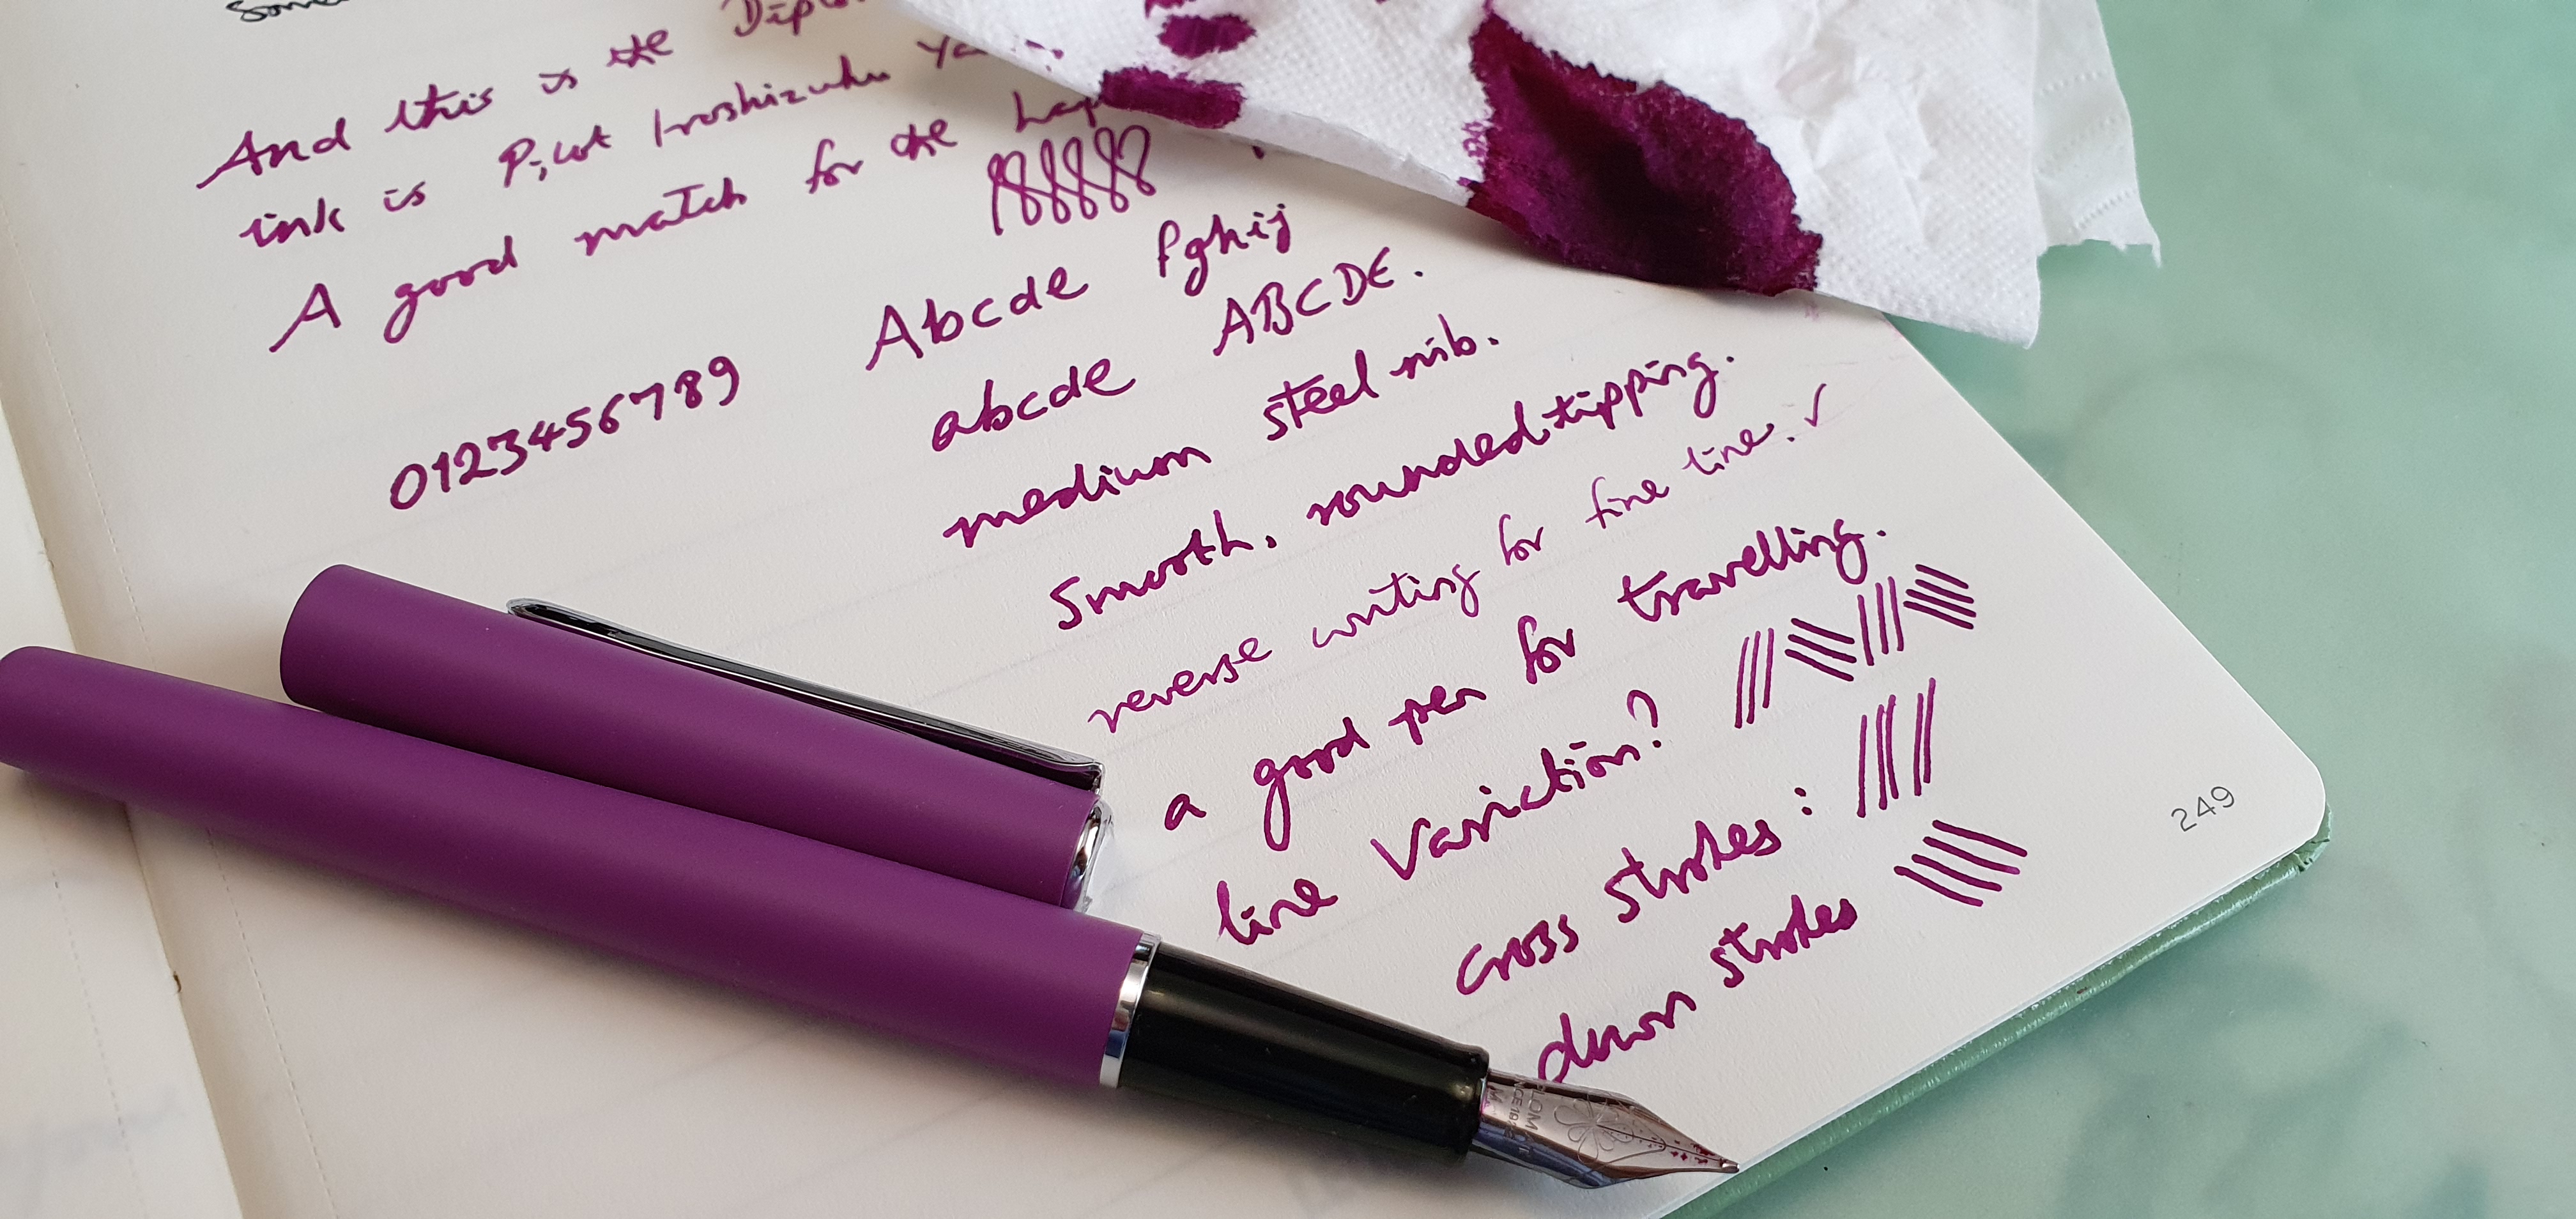 And this is the
ink is Pilot Iroshizuku
A good match for the
0123456789
Abcde fghij
abcde ABCDE.
medium steel nib.
Smooth, rounded tipping.
reverse writing for fine line. ✓
a good pen for travelling.
line variation?
cross strokes:
down strokes
249